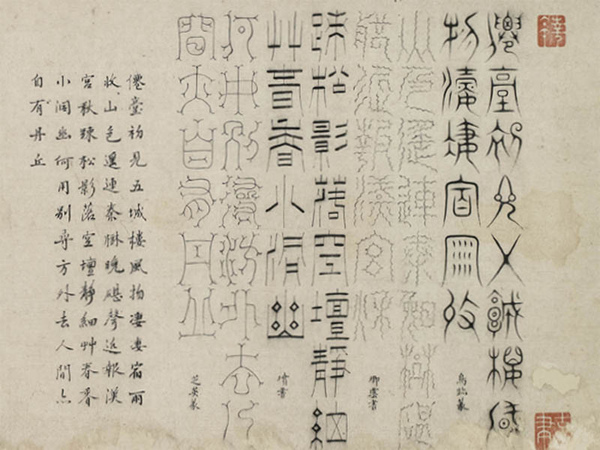 僊臺初見五城樓風
物淒淒宿雨收
鳥跡篆
山色遙連秦樹晚砧
聲近報漢宮秋
卿雲書
疎松影落空壇靜細
艸春香小洞幽
填書
何用別尋方外去人
間亦自有丹丘
芝英篆
僊臺初見五城樓風物淒淒宿雨
收山色遙連秦樹晚砧聲近報漢
宮秋疎松影落空壇靜細艸春香
小洞幽何用別尋方外去人間亦
自有丹丘